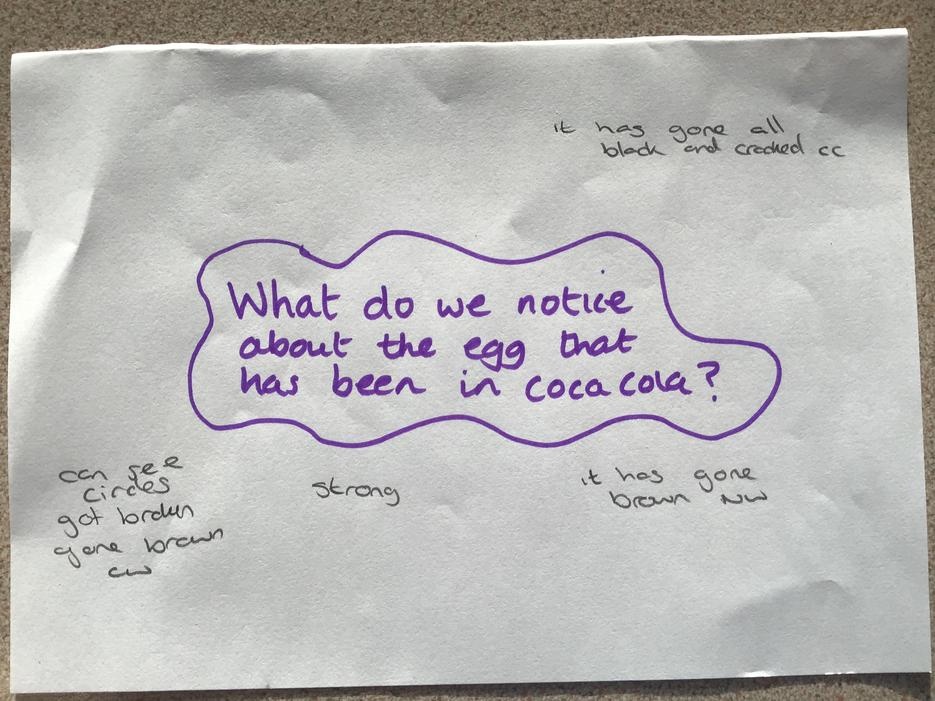 it has gone all
black and cracked cc
What do we notice
about the egg that
has been in coca cola?
can see
circles
got broken
gone brown
cw
strong
it has gone
brown NW